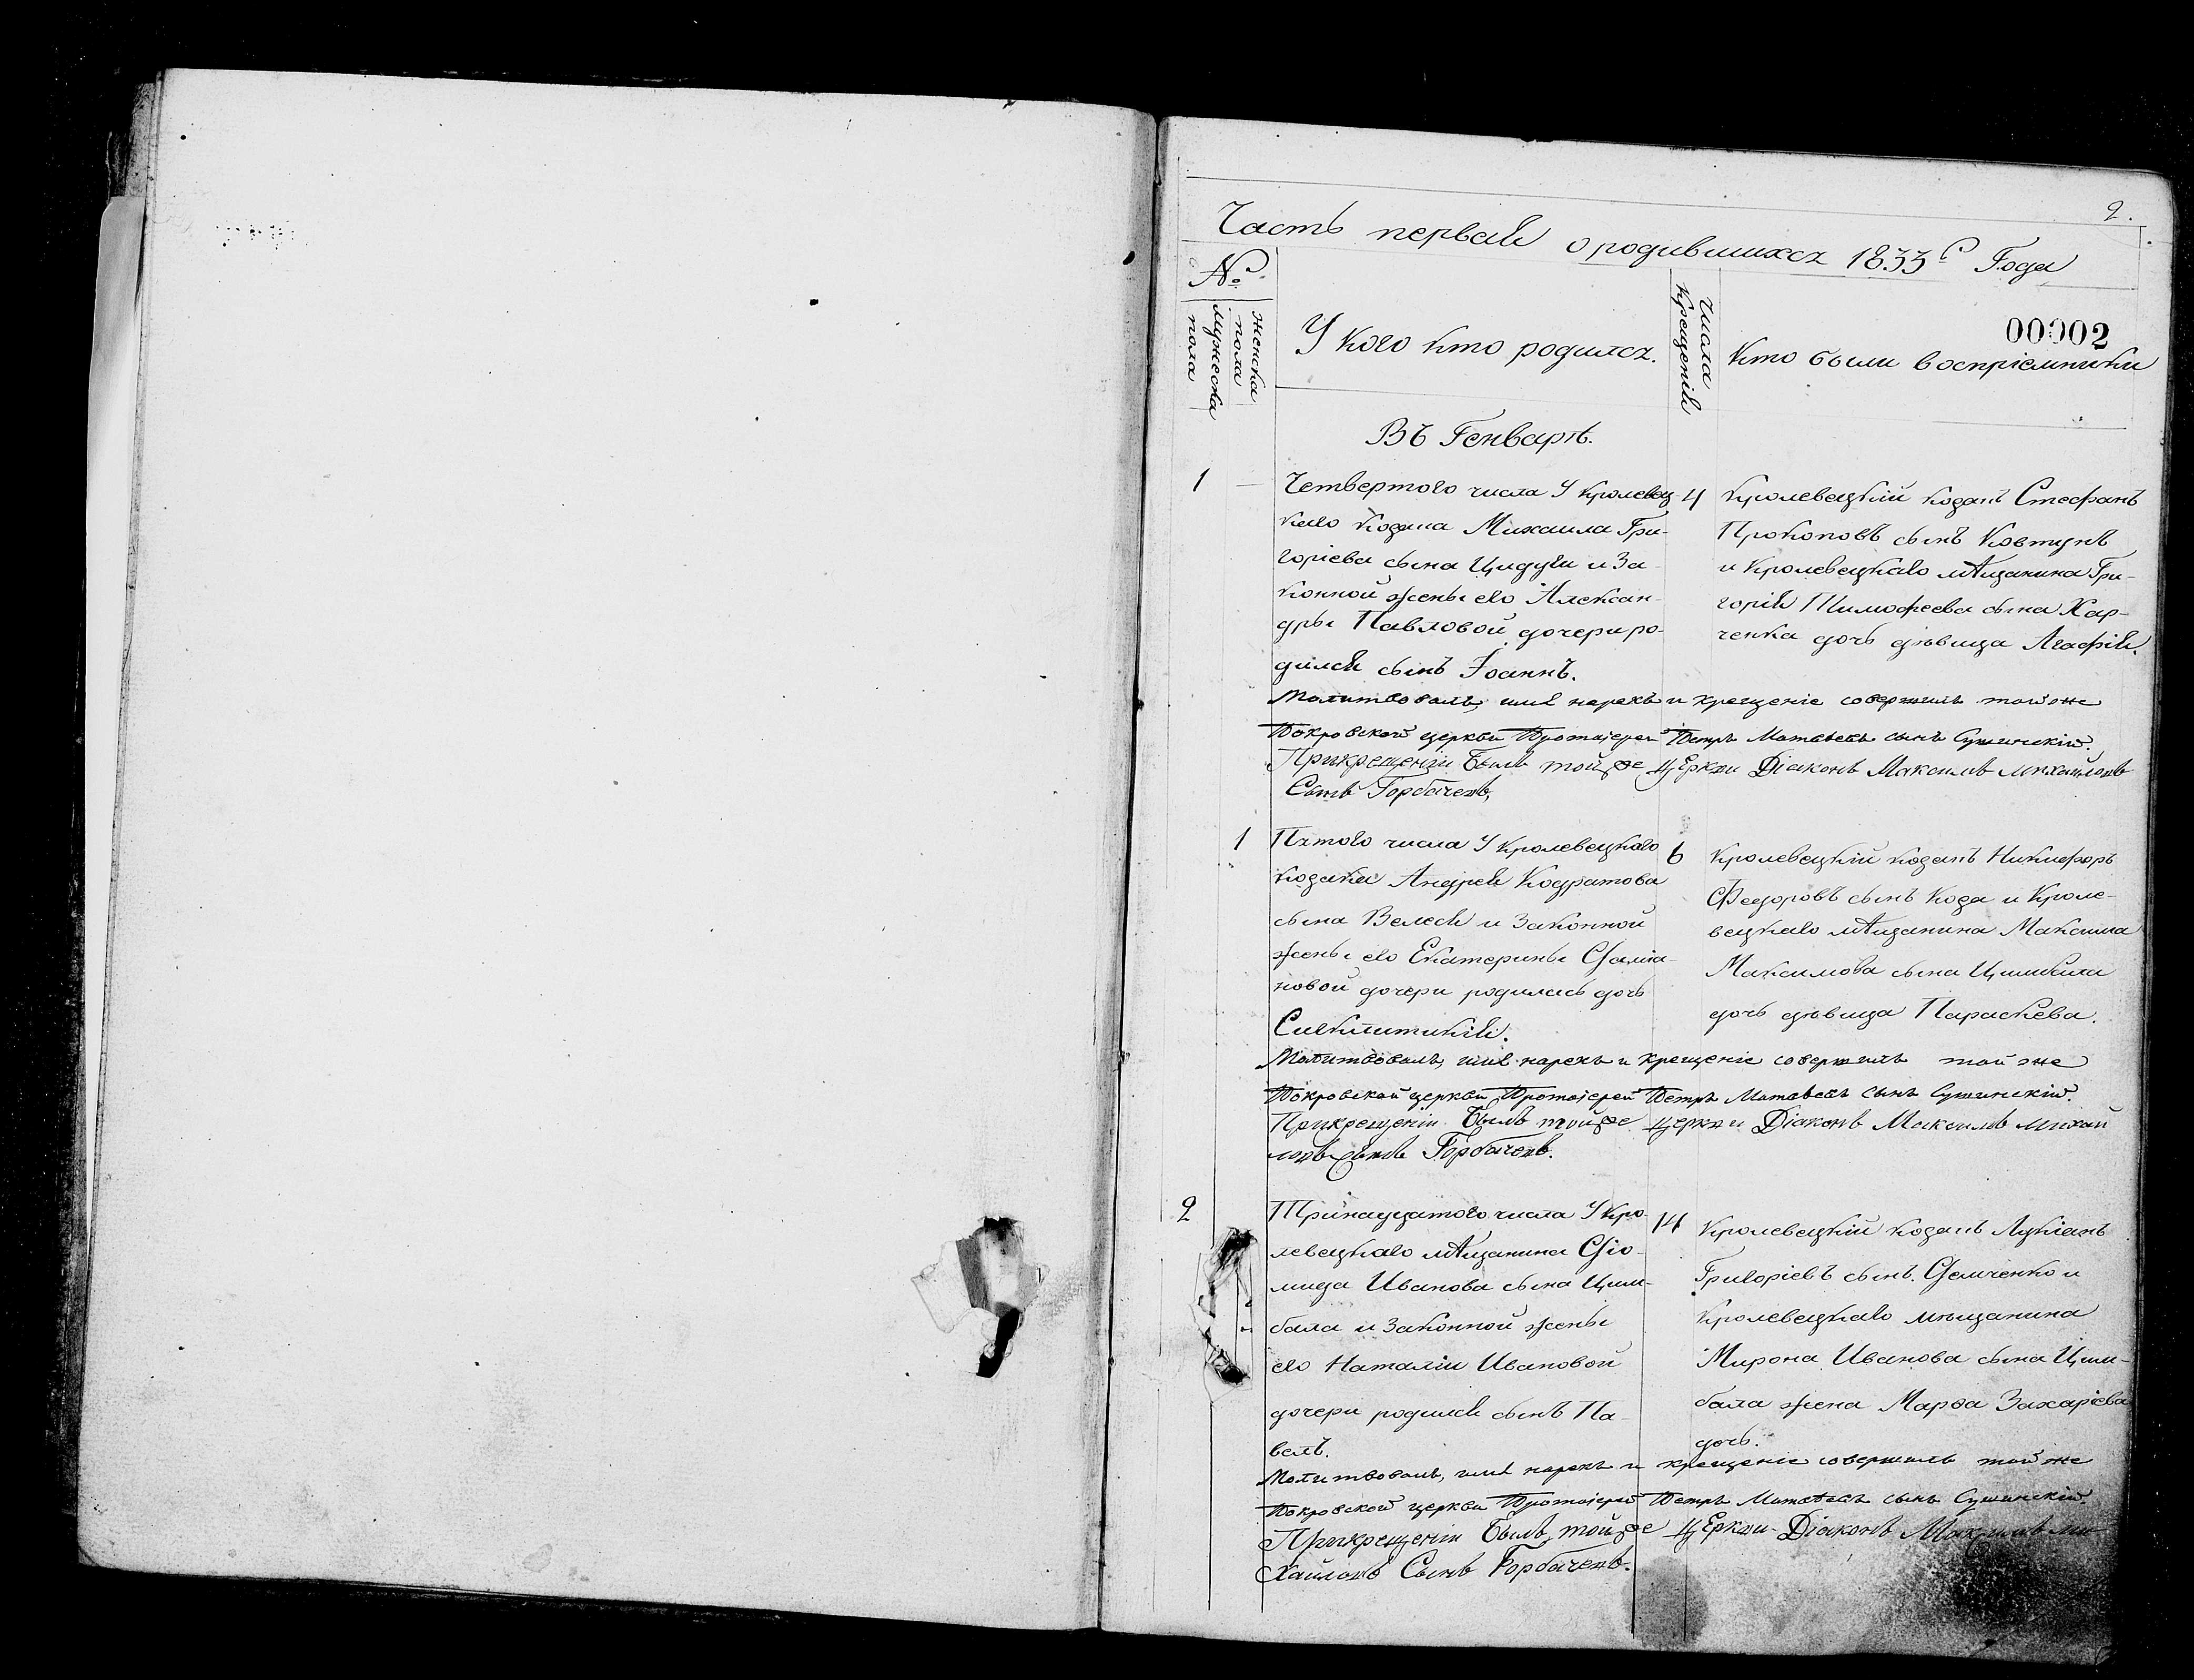 2.
Часть первая о родившихся 1833го Года
№
мужеска пола
женска пола
У кого кто родился.
Числа крещенія
Кто были воспріемники
00002
Въ Генварѣ.
1
Четвертого числа У кролевец
каго козака Михаила Гри-
горіева сына Цидули и За-
конной жены его Алексан-
дры Павловой дочери ро-
дился сынъ Іоаннъ.
4
Кролевецкій козакъ Стефанъ
Прокоповъ сынъ Ковтунъ
и Кролевецкаго мѣщанина Гри-
горія Тимофеева сына Хар-
ченка дочь дѣвица Агафія.
Молитвовалъ, имя нарекъ и крещеніе совершилъ той же
Покровской церкви Протоіерей Петръ Матвѣевъ сынъ Сушинскій.
При крещеніи былъ той же церкви Діаконъ Максимъ Михайловъ
Сынъ Горбачевъ,
1
Пятого числа У кролевецкого
козака Андрея Кодратова
сына Велеся и Законной
жены его Екатерины Даміа-
новой дочери родилась дочь
Сигклитикія.
6
Кролевецкій козакъ Никифоръ
Федоровъ сынъ Коза и Кроле-
вецкаго мѣщанина Максима
Максимова сына Цимбала
дочь дѣвица Параскева.
Молитвовалъ, имя нарекъ и крещеніе совершилъ той же
Покровской церкви Протоіерей Петръ Матвѣевъ сынъ Сушинскій.
При крещеніи былъ той же церкви Діаконъ Максимъ Михай
ловъ Сынъ Горбачевъ.
2
Тринадцатого числа У кро-
левецкаго мѣщанина Діо-
мида Иванова сына Цим-
бала и Законной жены
его Наталіи Ивановой
дочери родился сынъ Па-
велъ.
14
Кролевецкій козакъ Лукіанъ
Григоріевъ сынъ Демченко и
кролевецкаго мѣщанина
Мирона Иванова сына Цим-
бала жена Марѳа Захаріева
дочь.
Молитвовалъ, имя нарекъ и крещеніе совершилъ той же
Покровской церкви Протоіерей Петръ Матвѣевъ сынъ Сушинскій.
При крещеніи былъ той же церкви Діаконъ Максимъ Ми
хайловъ Сынъ Горбачевъ.